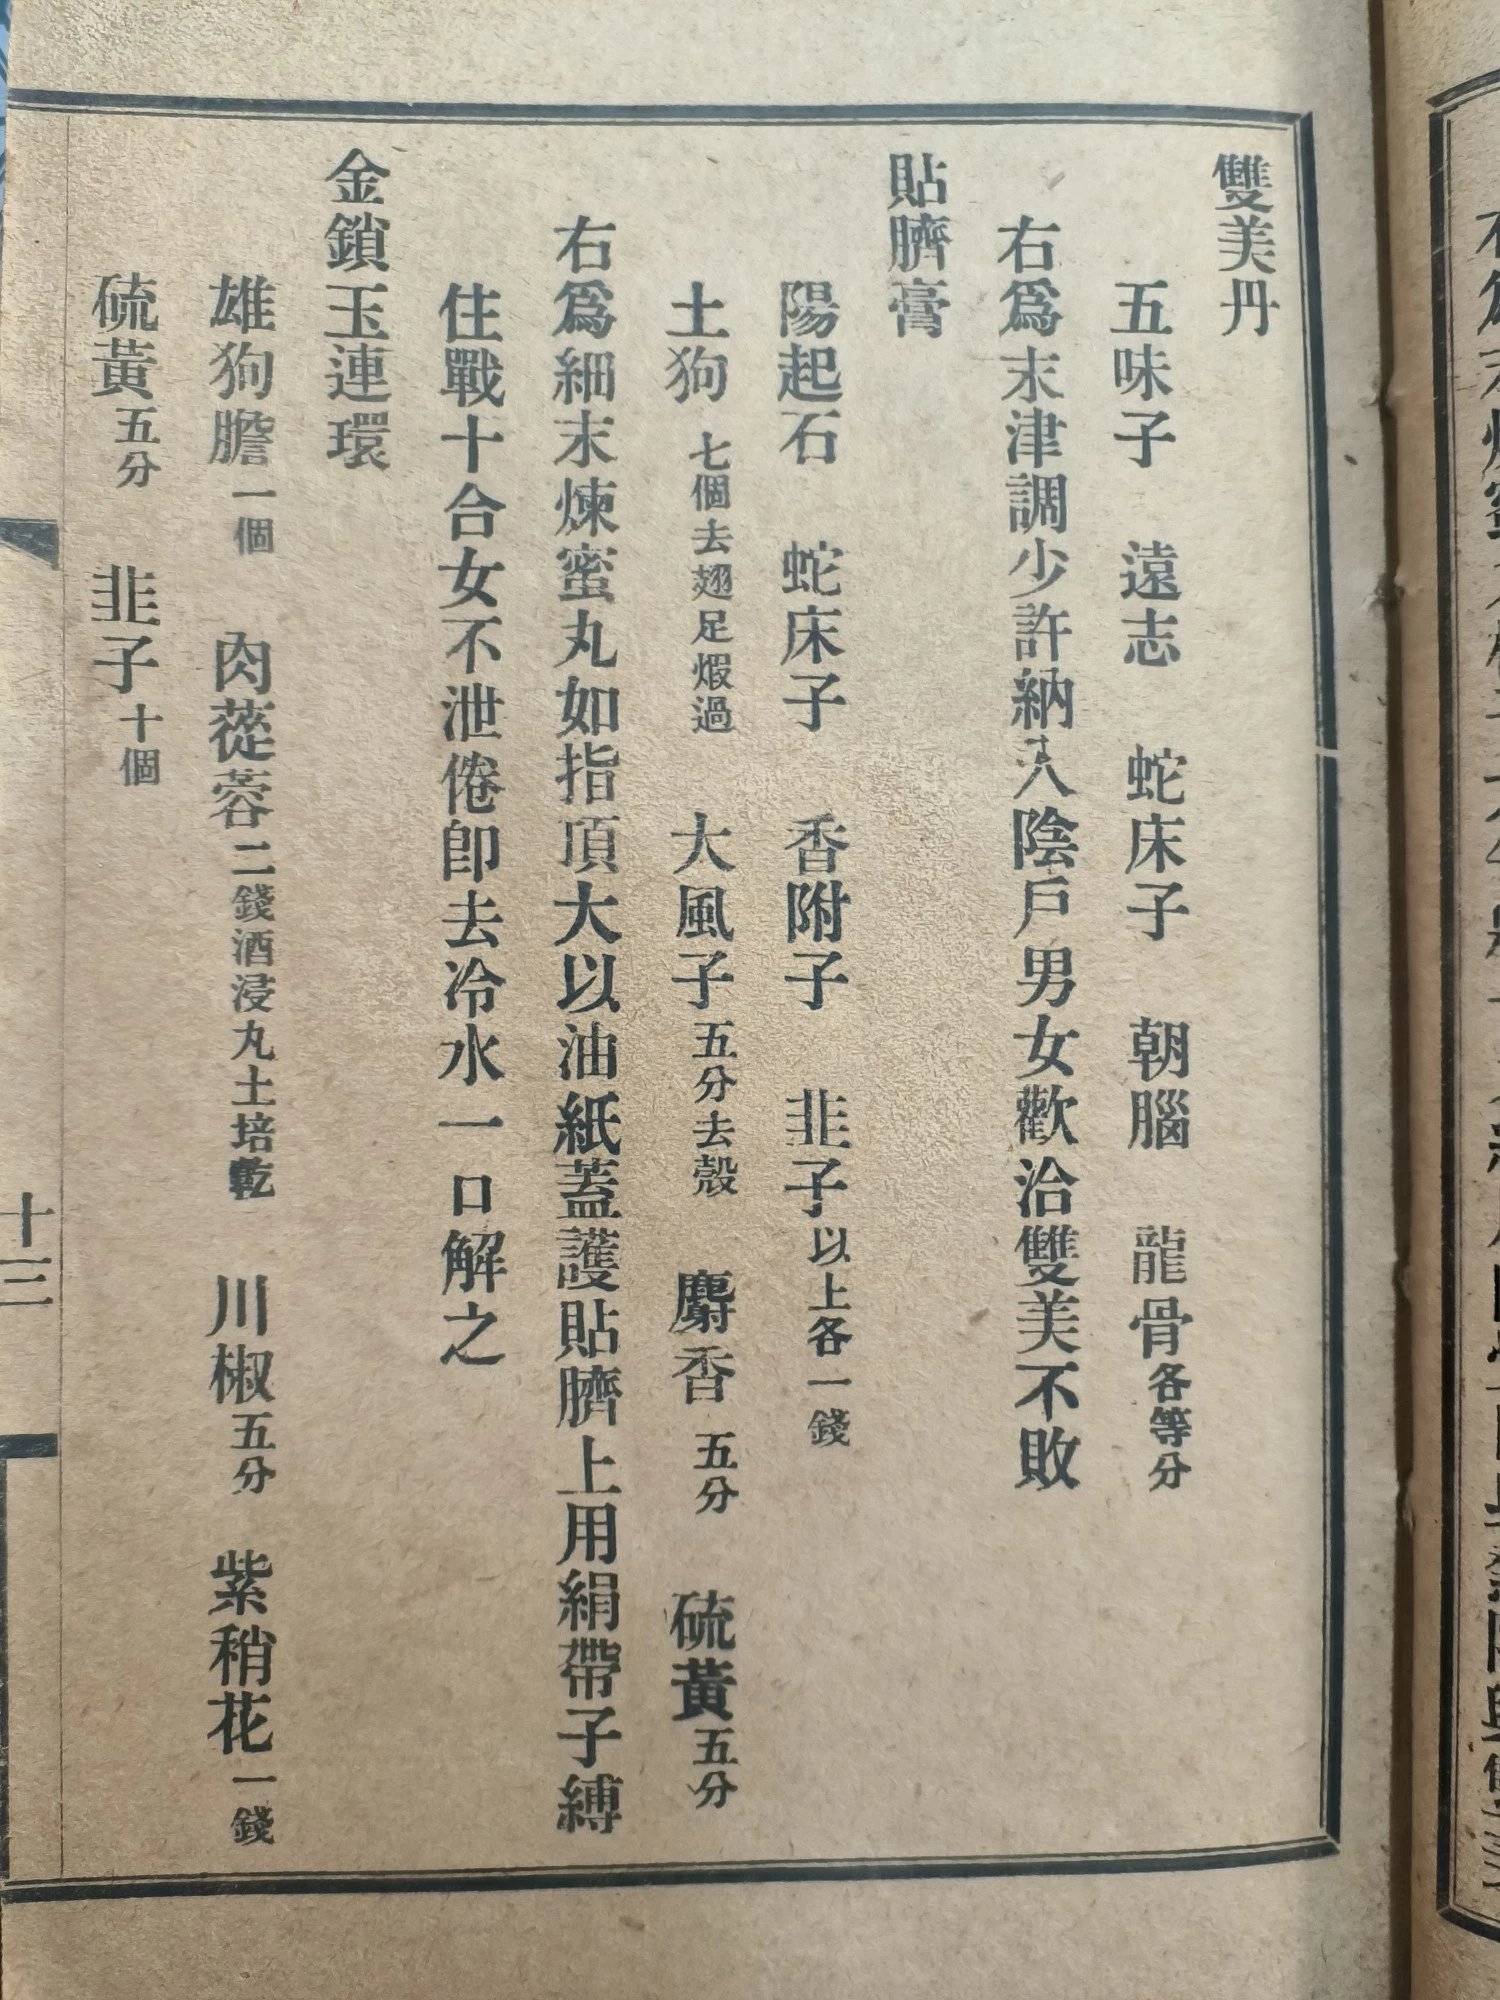 雙美丹
五味子　遠志　蛇床子　朝腦　龍骨各等分
右爲末津調少許納入陰戶男女歡洽雙美不敗
貼臍膏
陽起石　蛇床子　香附子　韭子以上各一錢
土狗七個去翅足煆過　大風子五分去殼　麝香五分　硫黃五分
右爲細末煉蜜丸如指頂大以油紙蓋護貼臍上用絹帶子縛
住戰十合女不泄倦卽去冷水一口解之
金鎖玉連環
雄狗膽一個　肉蓯蓉二錢酒浸丸土培乾　川椒五分　紫稍花一錢
硫黃五分　韭子十個
十三